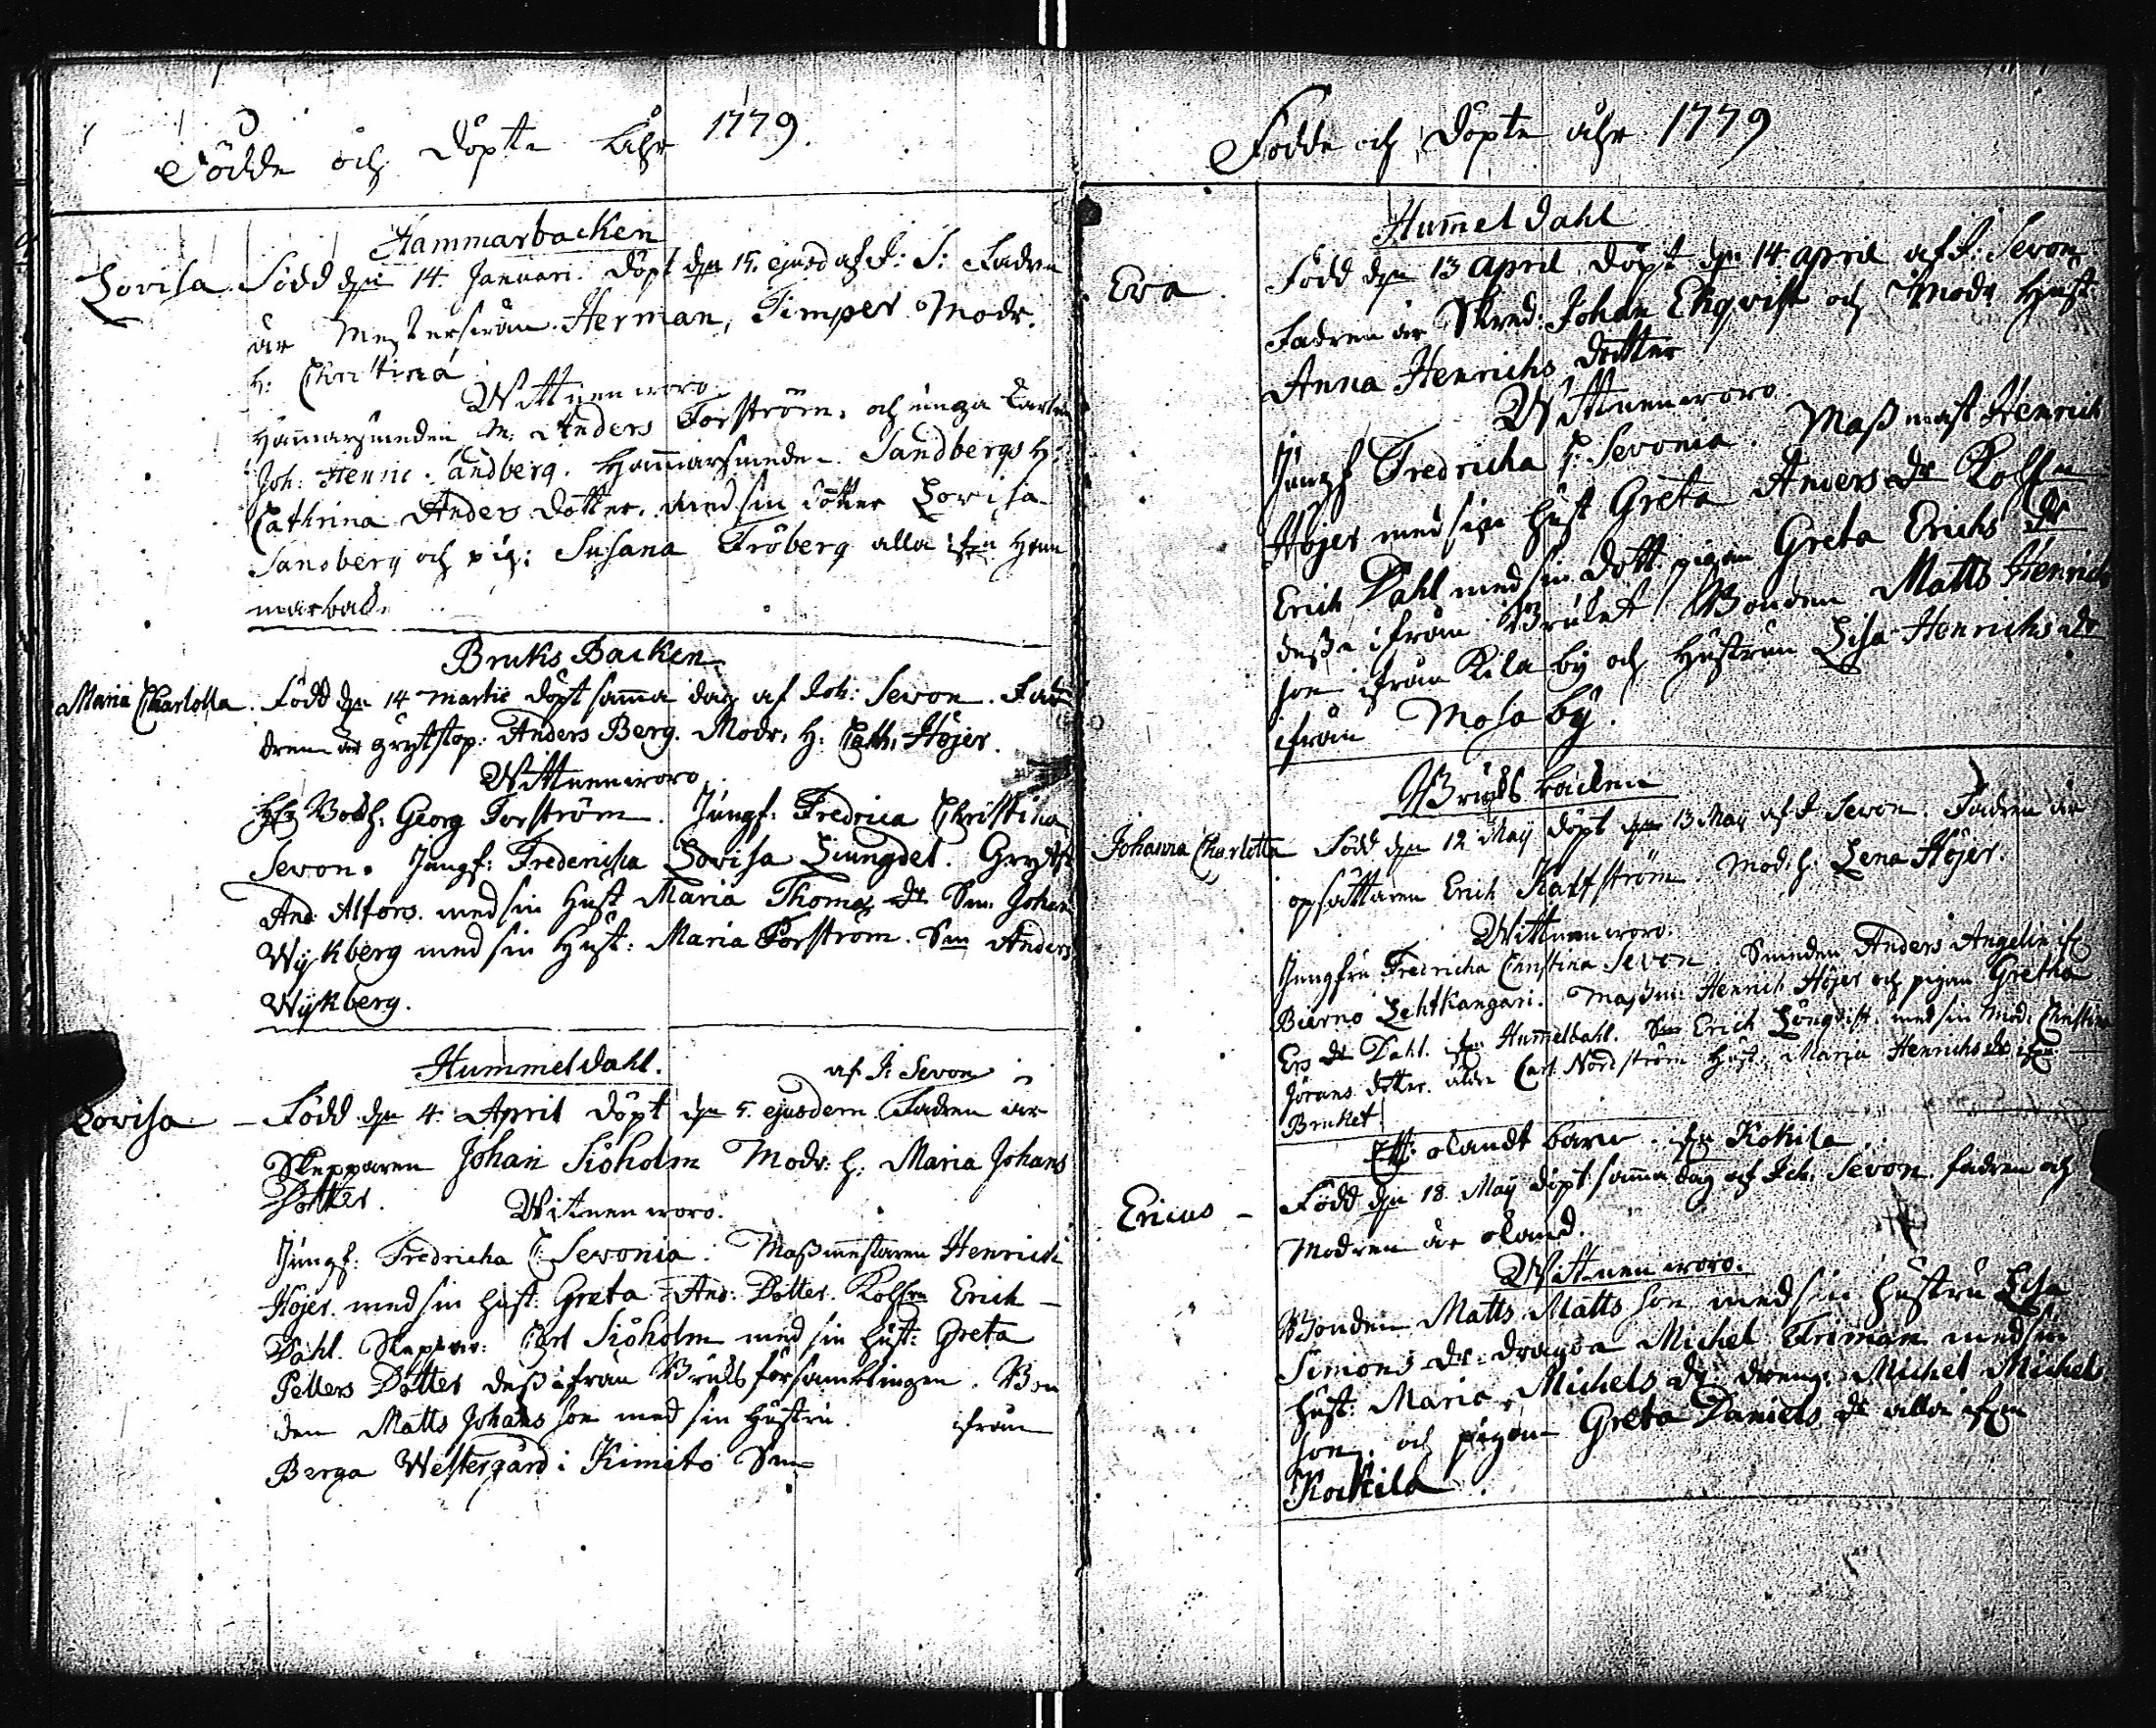 Födde och Döpte Åhr 1779.
Hammarbacken
Lovisa. Född den 14. Januari. Döpt den 15. ejusd af J: S: Fadren
är Mestersven Herman, Timper Modr.
h: Christina
Wittnen woro
Hammarsmeden M: Anders Forström. och unga Karlen
Joh: Henric Sandberg. Hammarsmeden Sandbergs H:
Cathrina Anders dotter. med sin dotter Lovisa
Sandberg och pig: Susana Fröberg alla ifrån Ham
marback.
Bruks Backen
Maria Charlotta. Född den 14 Martii döpt samma dag af Joh: Sevon. Fa
dren är grytstöp: Anders Berg. Modr. H: Cath: Höjer.
Wittnen woro
Bokh: Georg Forström. Jungf: Fredrica Christina
Sevon. Jungf: Fredericha Lovisa Liungdel. Grytst
And: Alfors. med sin Hust Maria Thomas dr Sm: Johan
Wykberg med sin Hust: Maria Forstrom. Sm Anders
Wykberg.
Hummeldahl.
af J: Sevon
Lovisa - Född den 4. April döpt den 5. ejusdem Fadren är
Skepparen Johan Siöholm Modr: h: Maria Johans
Dotter. Witnen woro.
Jungf: Fredricha C: Sevonia. Maßmestaren Henrich
Höjer. med sin hust: Greta And: Dotter. Erich
Dahl. Skeppar: Carl Siöholm med sin hust: Greta
Petters Dotter deße ifrån Bruks församblingen. Bon
den Matts Johans son med sin Hustru. ifrån
Berga Westergård i Kimito Sn
Födde och Döpte åhr 1779
Hummeldahl
Eva. Född den 13 April, döpt den 14 April af J: Sevon
Fadren är Skred: Johan Ekqvist och Modr Hust:
Anna Henrichs dotter
Wittnen woro.
Jungf Fredricha C: Sevonia. Maßmäst Henrich
Höjer med sin hust Greta Anders dr
Erich Dahl med sin dott. pigan Greta Erichs dr
deße ifrån Bruket. Bonden Matts Henrich
son ifrån Kila by och Hustrun Lisa Henrichs dr
ifrån Mosa by.
Bruks backen
Johanna Charlotta Född den 12 May döpt den 13 May af J Sevon. Fadren är
opsättaren Erich Kalfström. Mod: h: Lena Höjer.
Wittnen woro.
Jungfru Fredricha Christina Sevon. Smeden Anders Angelin
Bierno Lehtkangari. Maßm: Henrich Höjer och pigan Gretha
Ers dr Dahl. ifrån Hummeldahl. Erich Löngvist. med sin Mod: Christina
Jörans dotter. Carl Nordström Hust: Maria Henrichs dr ifrån
Bruket
Ett olandt barn ifrån Kokila.
Ericus - Född den 18. May döpt samma dag af Joh: Sevon. fadren och
Modren är oland.
Wittnen woro.
Bonden Matts Matts son med sin hustru Lisa
Simons dr. dragon Michel Friman med sin
hust: Maria Michels dr dreng: Michel Michels
son. och pigan Greta Daniels dr alla ifrån
Kockila.